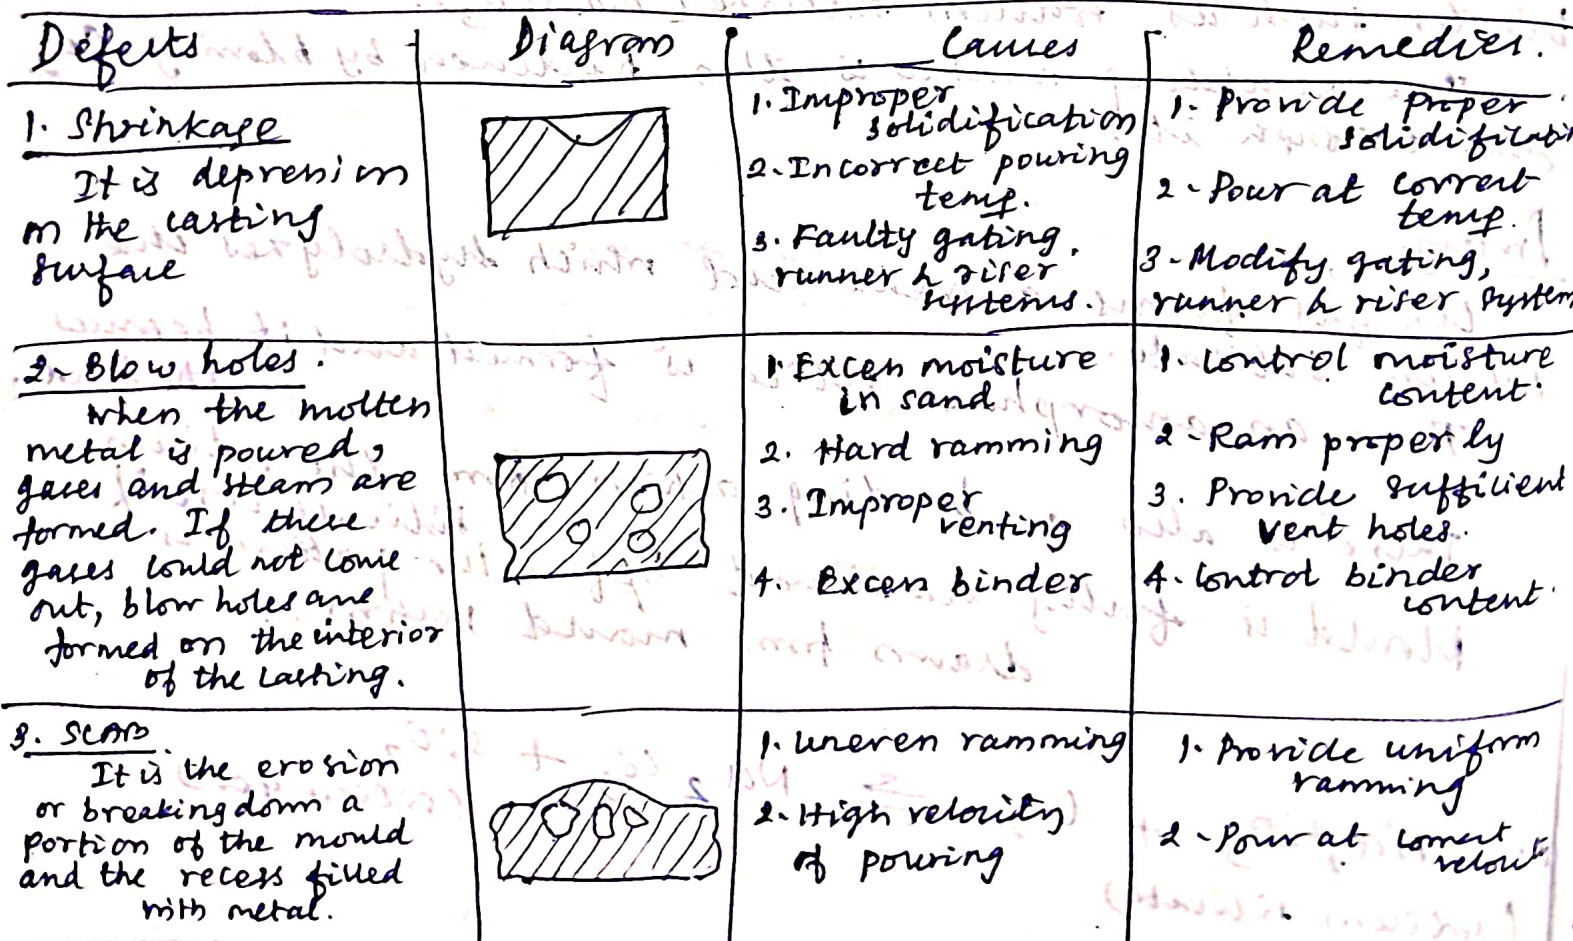 Defects Diagram Causes Remedies.
1. Shrinkage
It is depression
on the casting
surface
1. Improper
solidification
2. Incorrect pouring
temp.
3. Faulty gating,
runner & riser
systems.
1. Provide proper
solidificati
2. Pour at correct
temp.
3. Modify gating,
runner & riser system
2. Blow holes.
when the molten
metal is poured,
gases and steam are
formed. If these
gases could not come
out, blow holes are
formed on the interior
of the casting.
1. Excess moisture
in sand
2. Hard ramming
3. Improper
venting
4. Excess binder
1. Control moisture
content.
2. Ram properly
3. Provide sufficient
vent holes.
4. Control binder
content.
3. SCAB
It is the erosion
or breaking down a
portion of the mould
and the recess filled
with metal.
1. Uneven ramming
2. High velocity
of pouring
1. Provide uniform
ramming
2. Pour at correct
veloci